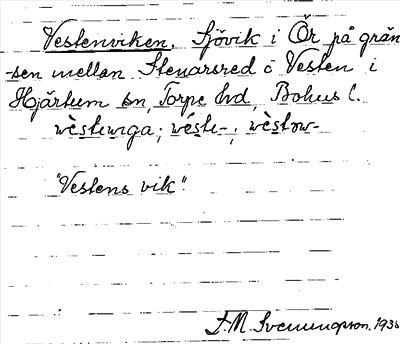 Vestenviken. Sjövik i Ör på grän
-sen mellan Stenarsred o Vesten i
Hjärtum sn, Torpe hd, Bohus l.
wèstewiga; véste-; wèstøw-
"Vestens vik".
J. M. Svenungsson. 193